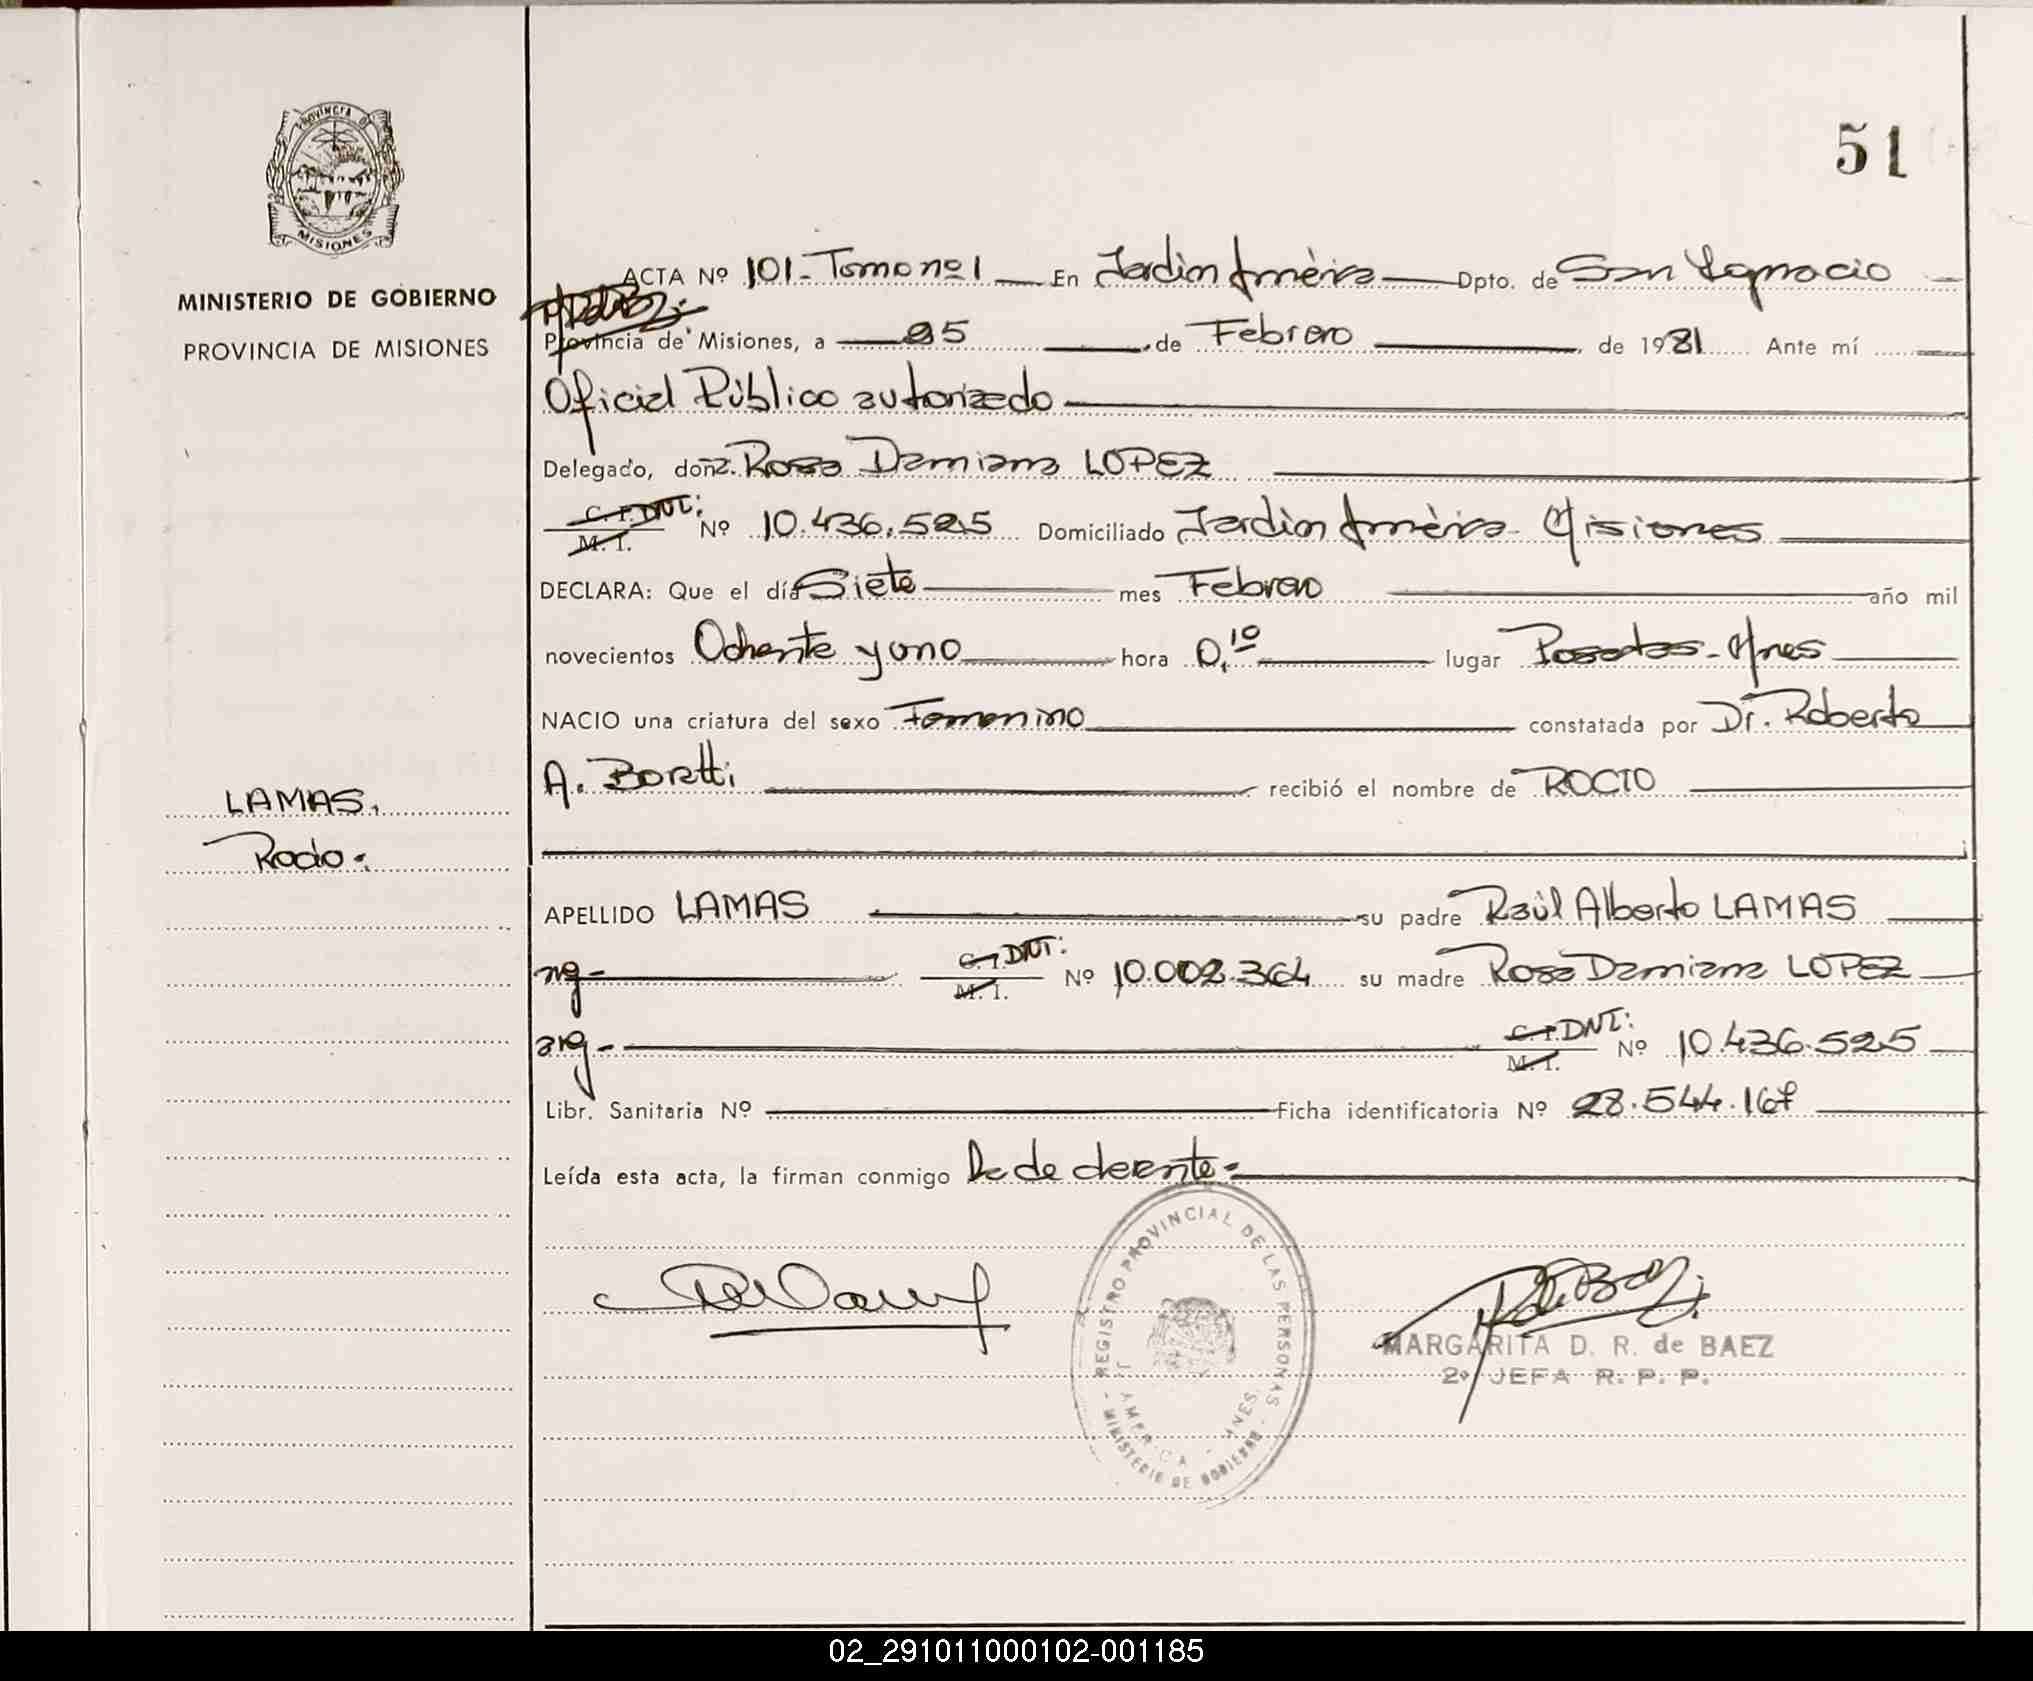 51
PROVINCIA DE
MISIONES
MINISTERIO DE GOBIERNO
PROVINCIA DE MISIONES
ACTA Nº 101 - Tomo nº 1 — En Jardín América — Dpto. de San Ignacio —
Provincia de Misiones, a — 25 — de Febrero — de 1981 Ante mí —
Oficial Público autorizado —
Delegado, doña Rosa Damiana LOPEZ —
C. I. DNI: M. I. Nº 10.436.525 Domiciliado Jardín América - Misiones —
DECLARA: Que el día Siete — mes Febrero — año mil
novecientos Ochenta y uno — hora 0,10 — lugar Posadas - Mnes —
NACIO una criatura del sexo Femenino — constatada por Dr. Roberto
A. Boretti — recibió el nombre de ROCIO —
LAMAS,
Rocío.
APELLIDO LAMAS — su padre Raúl Alberto LAMAS —
arg - — C. I. DNI: M. I. Nº 10.002.364 su madre Rosa Damiana LOPEZ —
arg - — C. I. DNI: M. I. Nº 10.436.525 —
Libr. Sanitaria Nº — Ficha identificatoria Nº 28.544.167 —
Leída esta acta, la firman conmigo La declarante. —
REGISTRO PROVINCIAL DE LAS PERSONAS
J. AMERICA - MNES.
- MINISTERIO DE GOBIERNO -
MARGARITA D. R. de BAEZ
2º JEFA R. P. P.
02_291011000102-001185